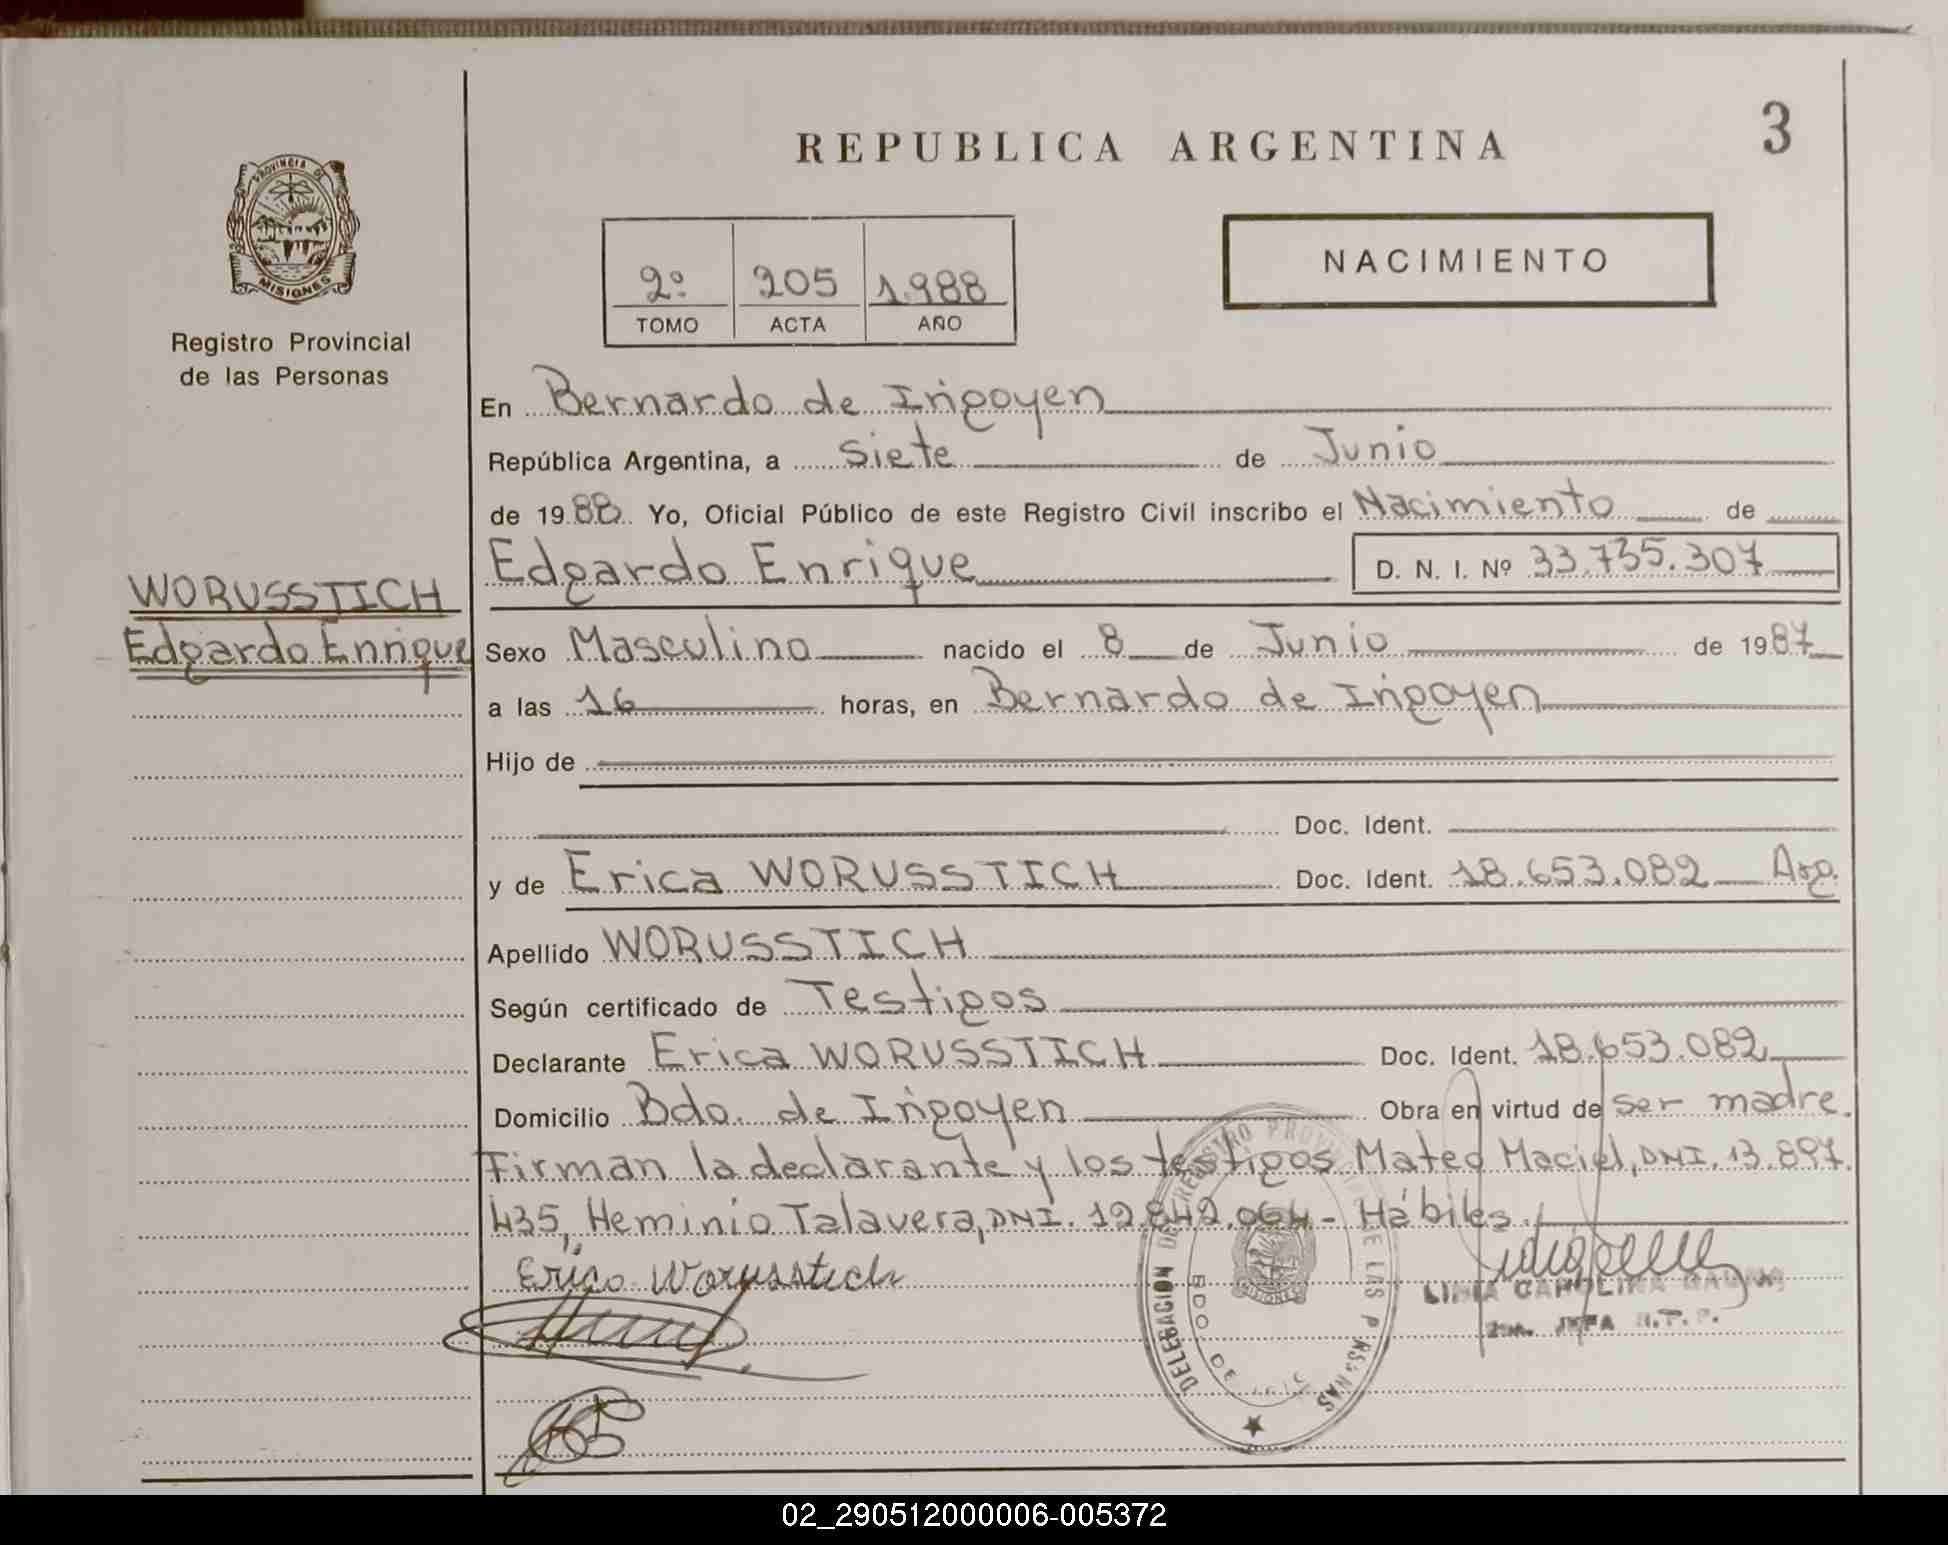 REPUBLICA ARGENTINA
3
PROVINCIA DE
MISIONES
Registro Provincial
de las Personas
2º 205 1988
TOMO ACTA AÑO
NACIMIENTO
En Bernardo de Irigoyen
República Argentina, a siete de Junio
de 1988. Yo, Oficial Público de este Registro Civil inscribo el Nacimiento de
Edgardo Enrique D. N. I. Nº 33.735.307
WORUSSTICH
Edgardo Enrique
Sexo Masculino nacido el 8 de Junio de 1987
a las 16 horas, en Bernardo de Irigoyen
Hijo de
Doc. Ident.
y de Erica WORUSSTICH Doc. Ident. 18.653.082 Arg.
Apellido WORUSSTICH
Según certificado de Testigos
Declarante Erica WORUSSTICH Doc. Ident. 18.653.082
Domicilio Bdo. de Irigoyen Obra en virtud de ser madre.
Firman la declarante y los testigos Mateo Maciel, DNI. 13.897.
435, Heminio Talavera, DNI. 12.842.064 - Hábiles.
Erica Worusstich
DELEGACION DE REGISTRO PROVINCIAL DE LAS PERSONAS
BDO DE
CAROLINA
JEFA R.P.P.
02_290512000006-005372